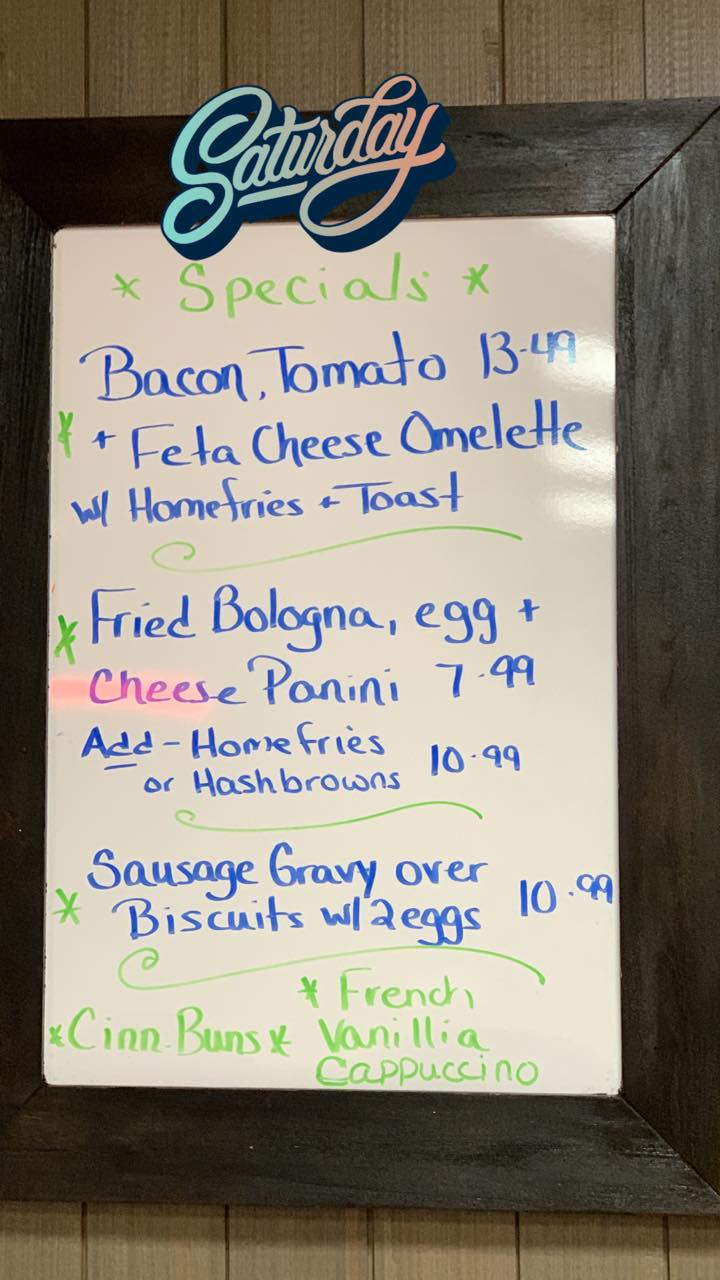 Saturday
* Specials *
Bacon, Tomato 13.49
* + Feta Cheese Omelette
w/ Homefries + Toast
* Fried Bologna, egg +
Cheese Panini 7.99
Add - Homefries
or Hashbrowns 10.99
Sausage Gravy over
* Biscuits w/ 2 eggs 10.99
* French
*Cinn. Buns* Vanillia
Cappuccino